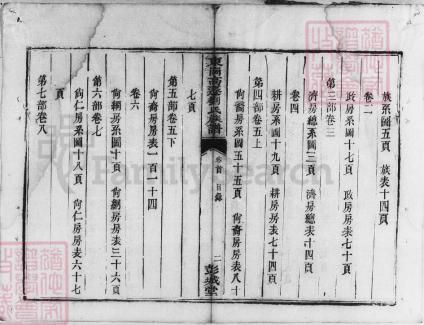 族系圖五頁　族表十四頁
卷二
政房系圖十七頁　政房房表七十頁
第三部卷三
濟房總系圖三頁　濟房總表十四頁
卷四
耕房系圖十九頁　耕房房表七十四頁
第四部卷五上
尙裔房系圖五十五頁　尙裔房房表八十
東閣高臺劉氏族譜
卷首　目錄
二
彭城堂
七頁
第五部卷五下
尙裔房房表一百一十四
卷六
尙綱房系圖十頁　尙綱房房表三十六頁
第六部卷七
尙仁房系圖十八頁　尙仁房房表六十七
頁
第七部卷八
FamilySearch